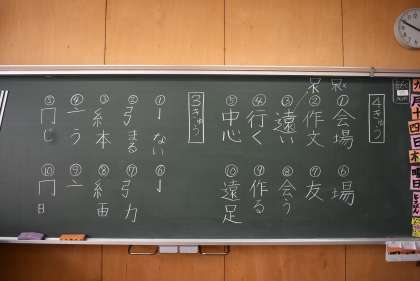 九月十四日木曜日
4きゅう
①会場
②作文
③遠い
④行く
⑤中心
⑥場
⑦友
⑧会う
⑨作る
⑩遠足
3きゅう
①ない
②弓まる
③糸本
④う
⑤冂じ
⑥
⑦弓力
⑧糸田
⑨亠
⑩冂日